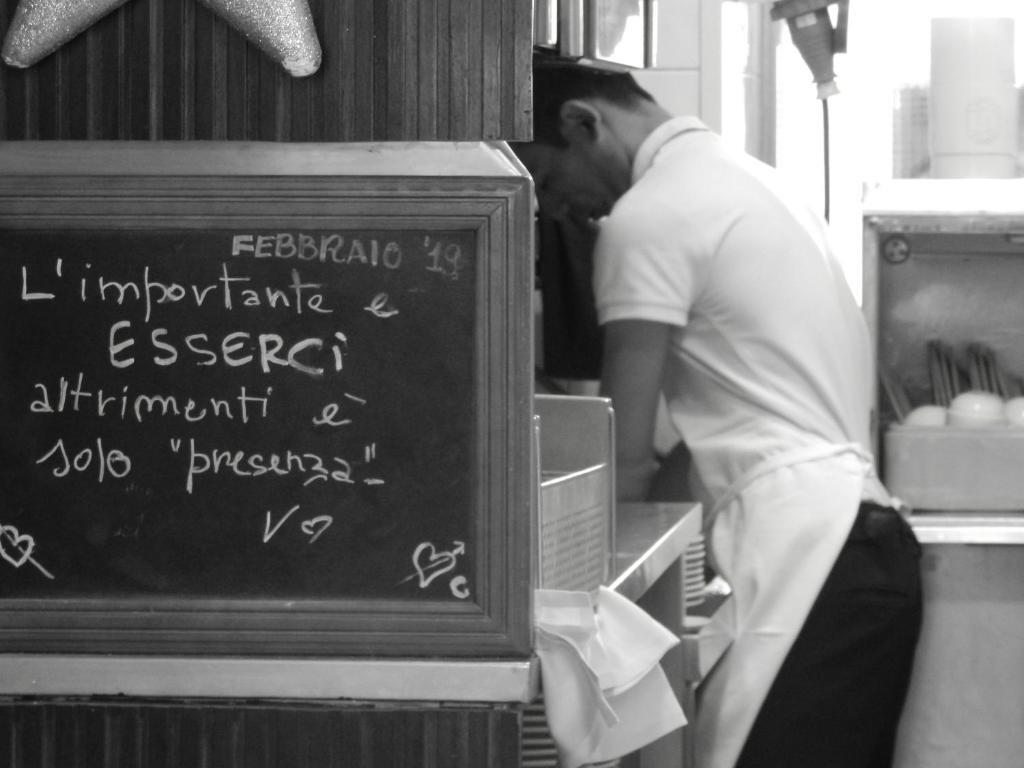 FEBBRAIO '19
L'importante e
ESSERCi
altrimenti è
solo "presenza"
V
c